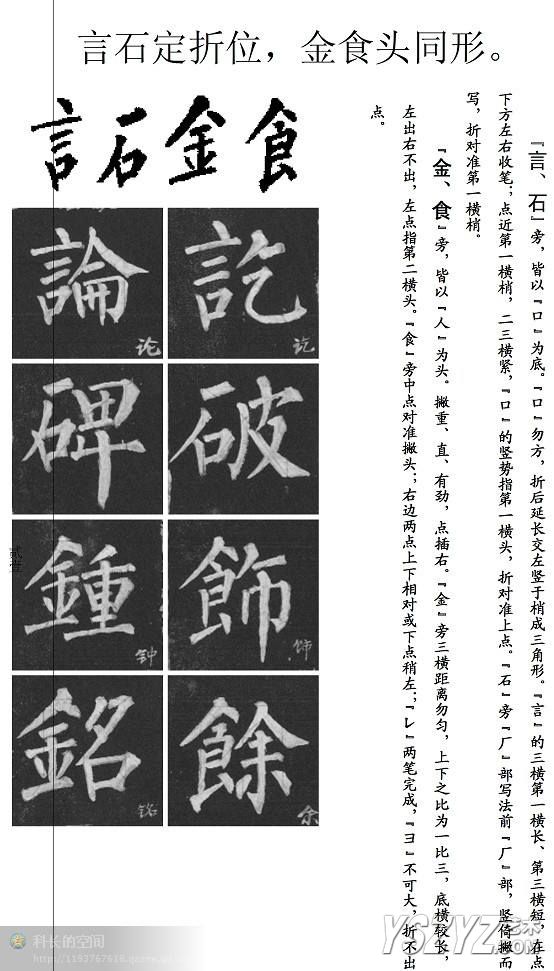 言石定折位，金食头同形。
言石金食
論 论
訖 讫
碑
破
鍾 钟
飾 饰
銘 铭
餘 余
贰壹
『言、石』旁，皆以『口』为底。『口』勿方，折后延长交左竖于梢成三角形。『言』的三横第一横长、第三横短，在点
下方左右收笔；点近第一横梢，二三横紧，『口』的竖势指第一横头，折对准上点。『石』旁『厂』部写法前『厂』部，竖倚撇而
写，折对准第一横梢。
『金、食』旁，皆以『人』为头。撇重、直、有劲，点插右。『金』旁三横距离勿匀，上下之比为一比三，底横较长，
左出右不出，左点指第二横头。『食』旁中点对准撇头；右边两点上下相对或下点稍左；『レ』两笔完成，『ヨ』不可大，折不出
点。
科长的空间
YSZYZ艺术